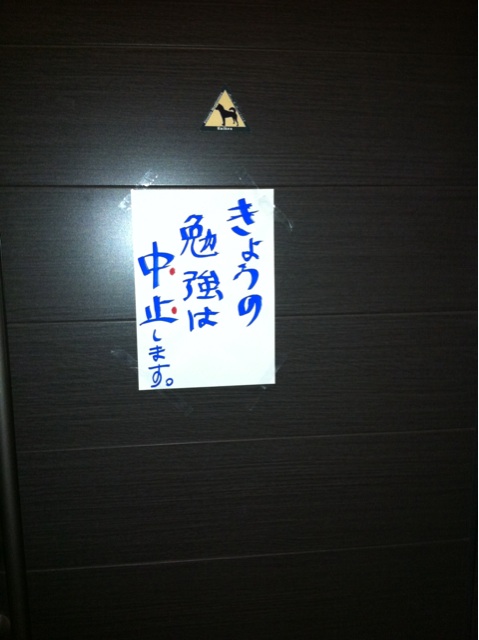 きょうの
勉強は
中止します。